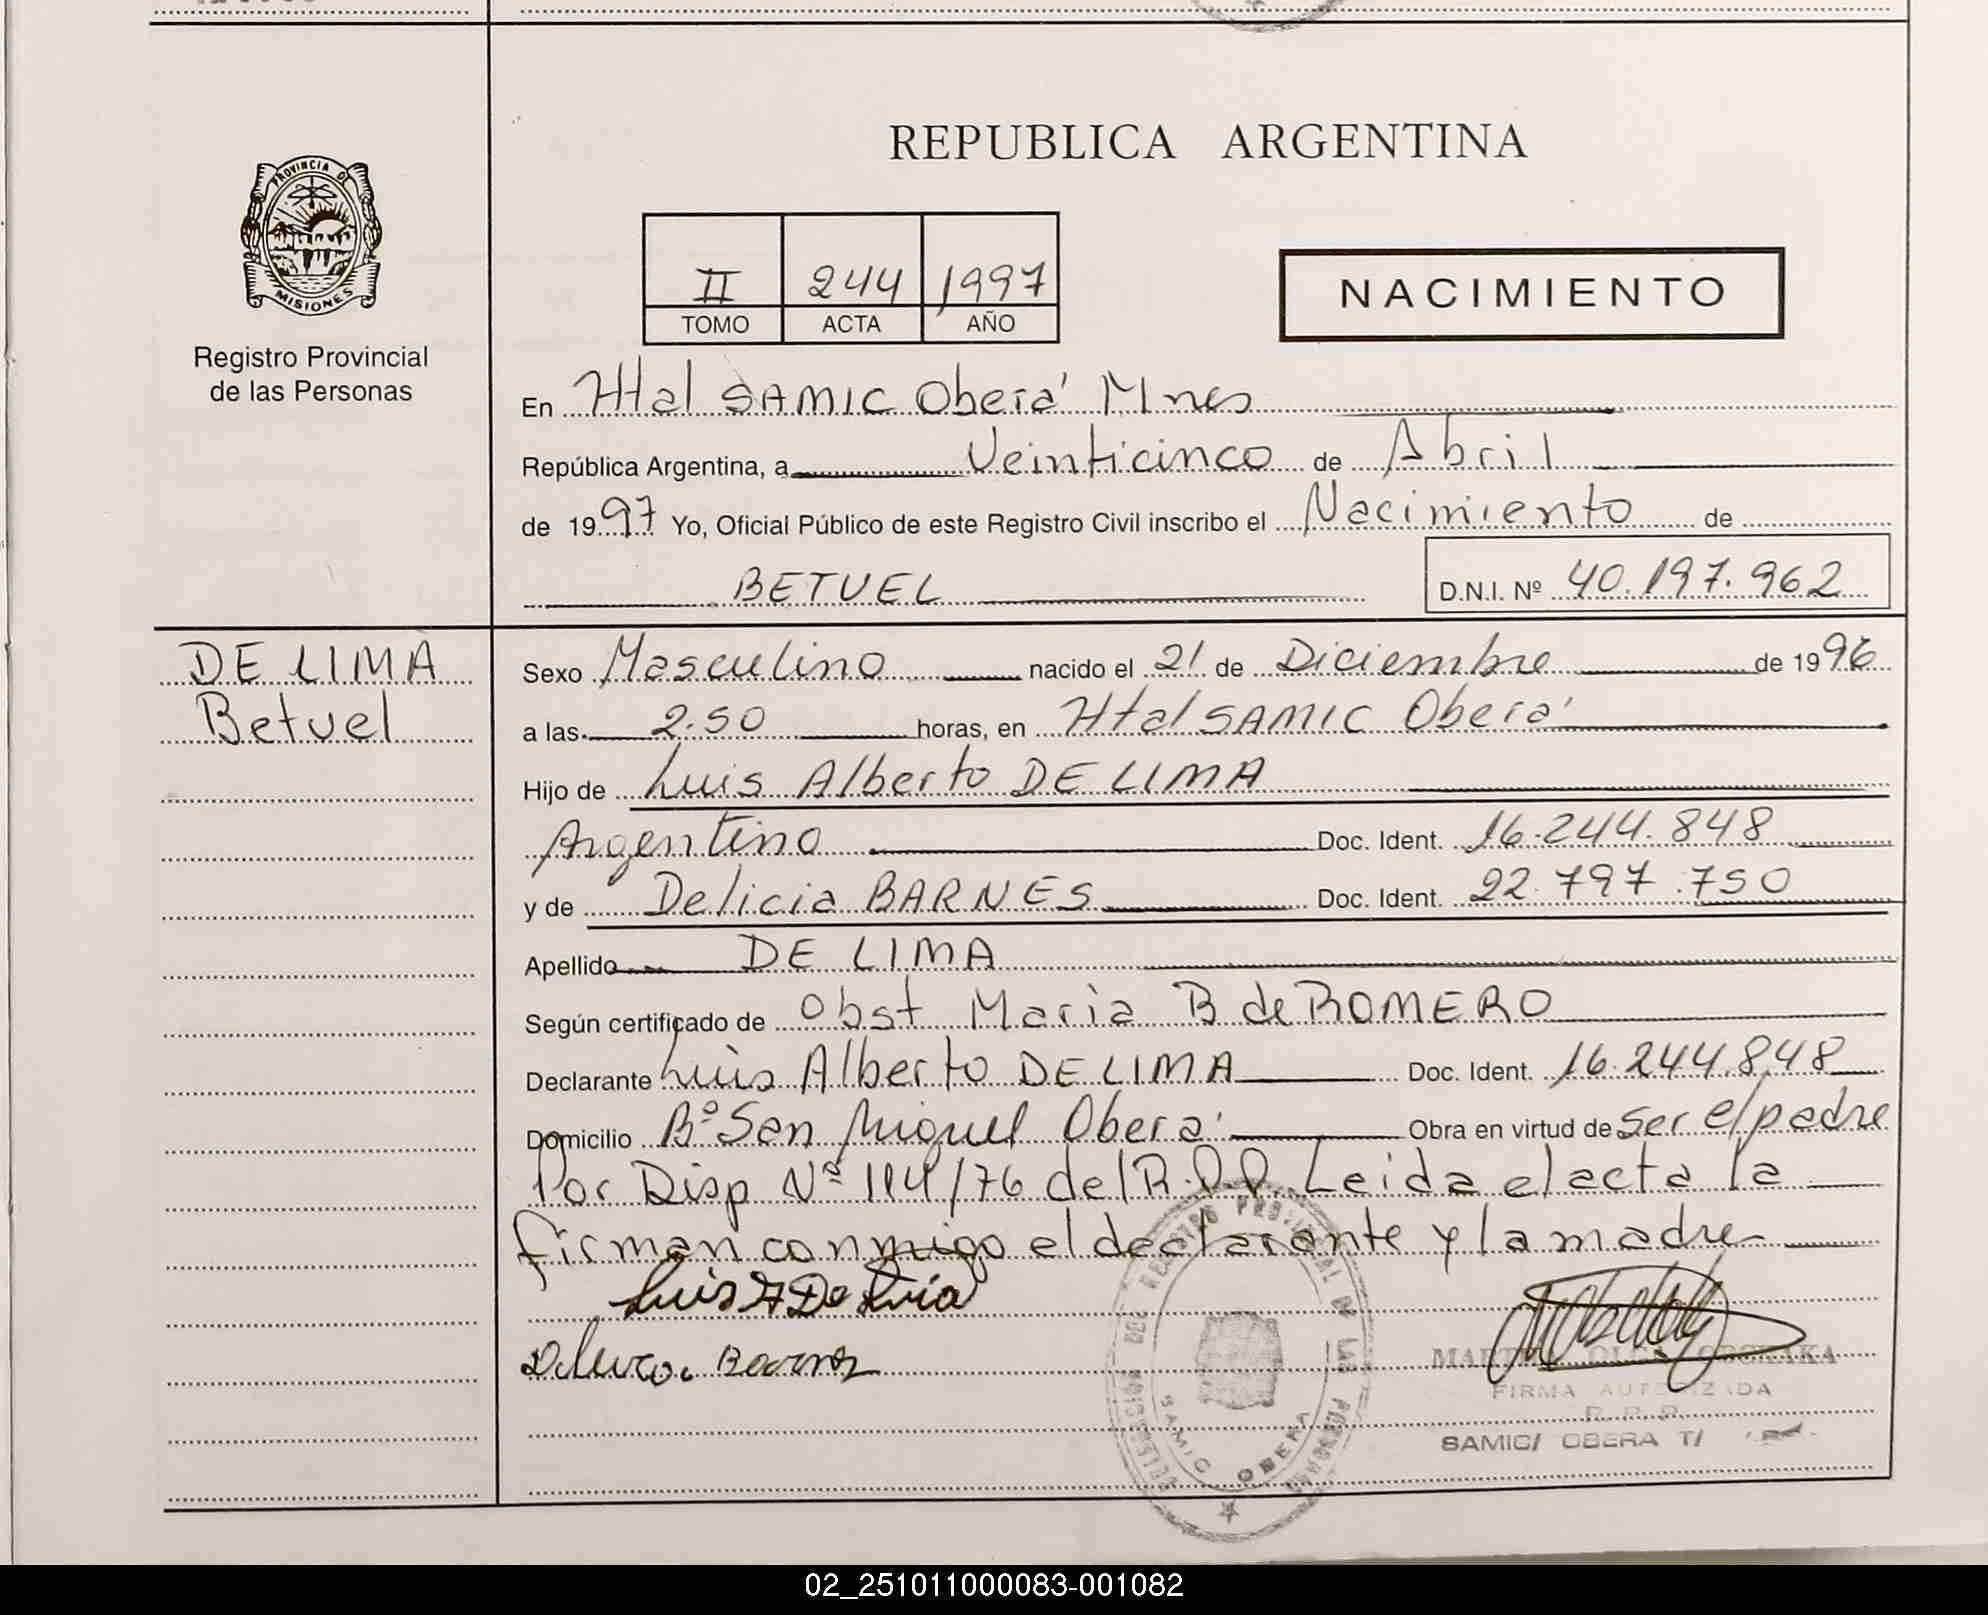 REPUBLICA ARGENTINA
PROVINCIA DE
MISIONES
Registro Provincial
de las Personas
II 244 1997
TOMO ACTA AÑO
NACIMIENTO
En Htal SAMIC Oberá Mnes
República Argentina, a Veinticinco de Abril
de 1997 Yo, Oficial Público de este Registro Civil inscribo el Nacimiento de
BETUEL D.N.I. Nº 40.197.962
DE LIMA
Betuel
Sexo Masculino nacido el 21 de Diciembre de 1996
a las 2.50 horas, en Htal SAMIC Oberá
Hijo de Luis Alberto DE LIMA
Argentino Doc. Ident. 16.244.848
y de Delicia BARNES Doc. Ident. 22.797.750
Apellido DE LIMA
Según certificado de Obst Maria B de ROMERO
Declarante Luis Alberto DE LIMA Doc. Ident. 16.244.848
Domicilio Bº San Miguel Oberá Obra en virtud de ser el padre
Por Disp Nº 114/76 del R.P.P. Leida el acta la
firman conmigo el declarante y la madre
Luis A De
REGISTRO PROVINCIAL DE LAS PERSONAS
SAMIC OBERA
FIRMA AUTORIZADA
R.P.P.
SAMIC/ OBERA T/
02_251011000083-001082